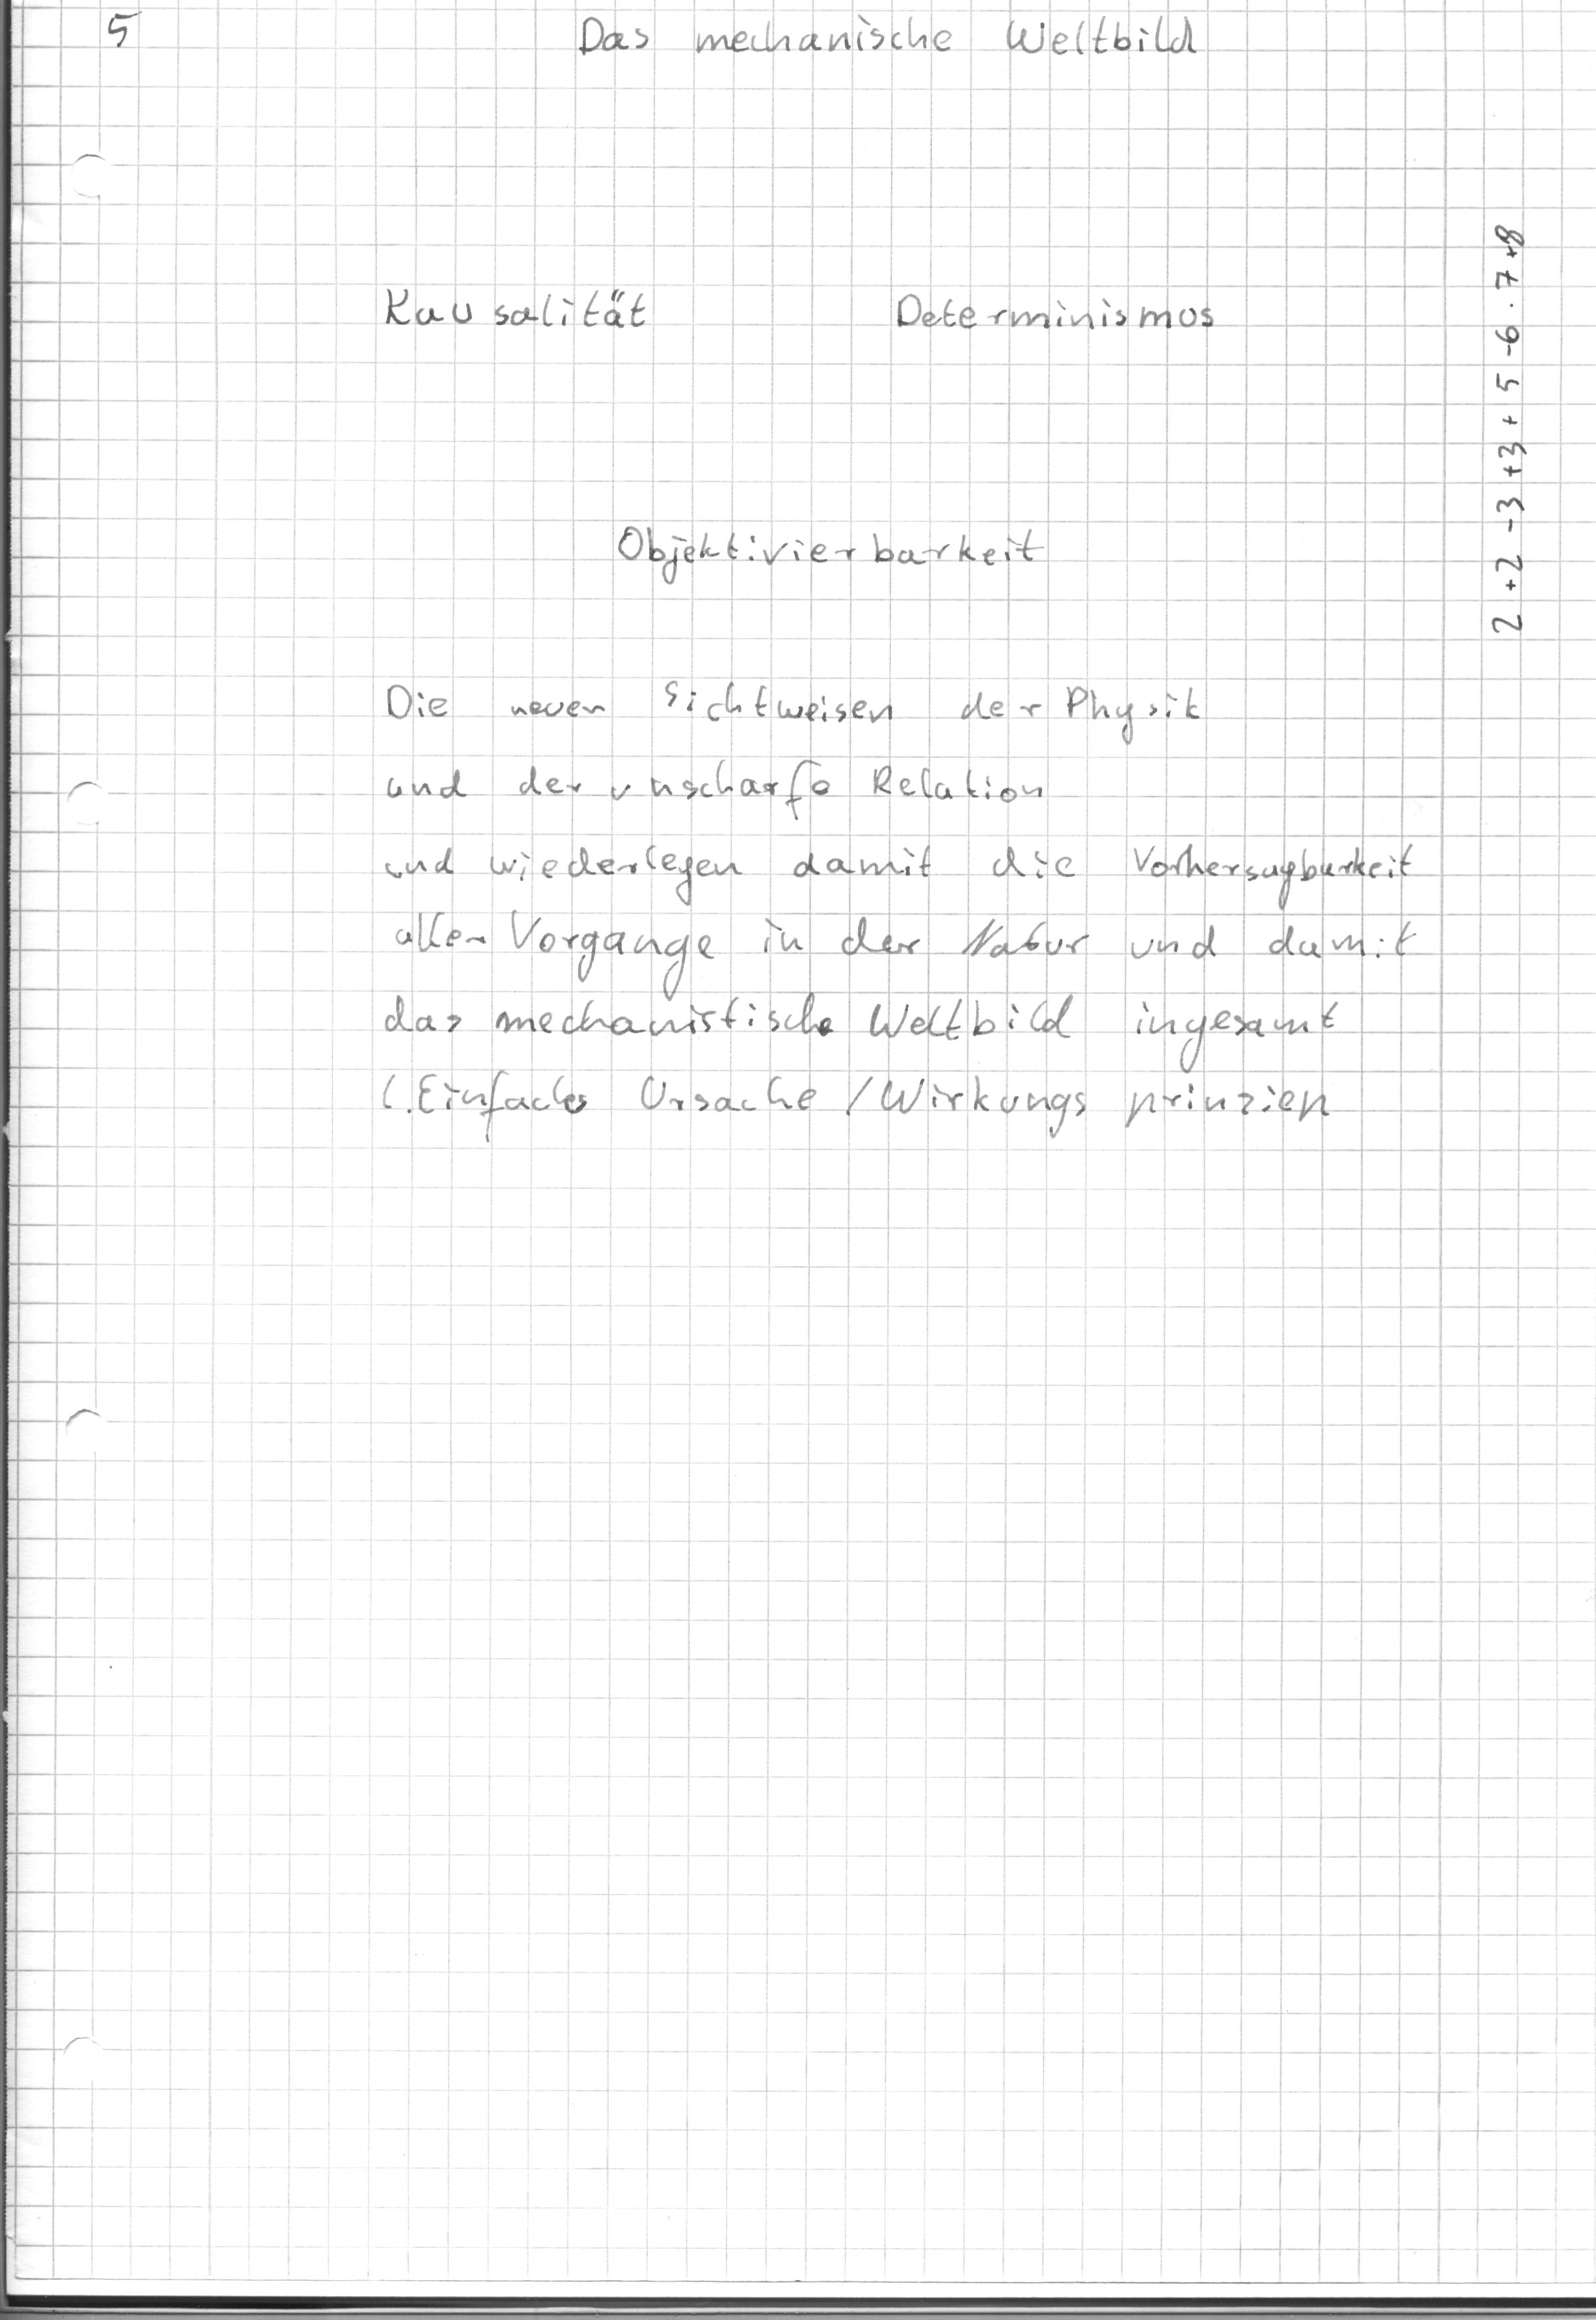 5 Das mechanische Weltbild
Kausalität Determinismus
Objektivierbarkeit
Die neuen Sichtweisen der Physik
und der unscharfe Relation
und wiederlegen damit die Vorhersagbarkeit
aller Vorgange in der Natur und damit
das mechanistische Weltbild ingesamt
(.Einfaches Ursache / Wirkungs prinzien
2 +2 -3 +3 + 5 -6 . 7 +8